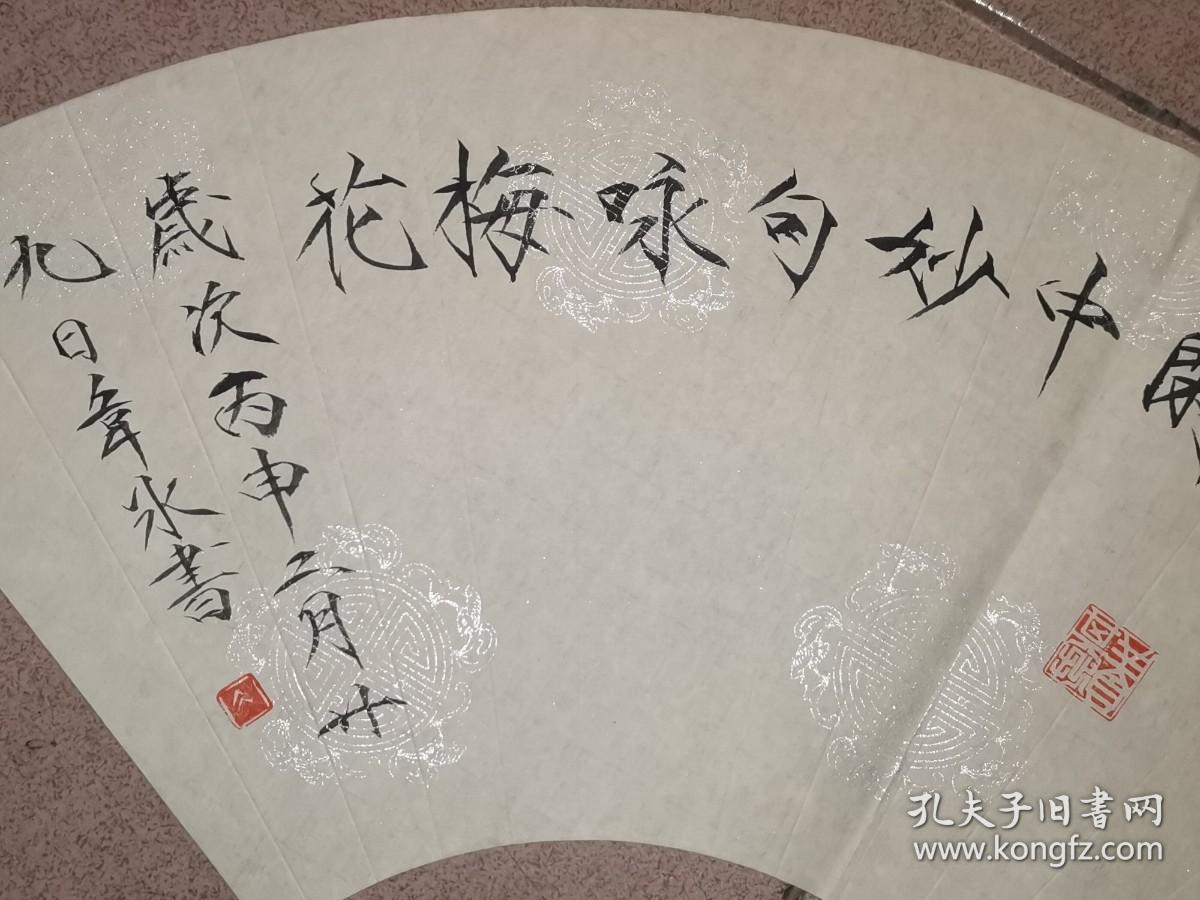 開
中
妙
句
咏
梅
花
歲次丙申二月廿
九日韋氷書
孔夫子旧书网
www.kongfz.com